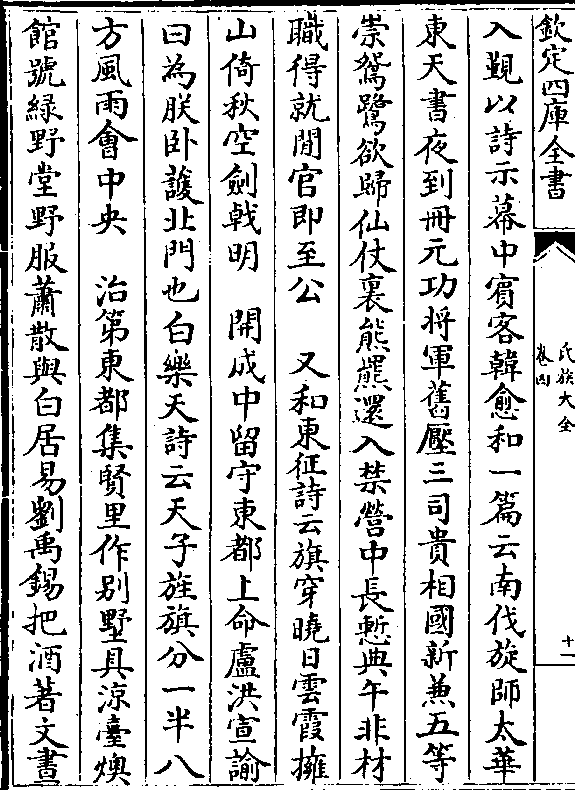 欽定四庫全書
氏族大全
卷四
十一
入覲以詩示幕中賓客韓愈和一篇云南伐旋師太華
東天書夜到冊元功將軍舊壓三司貴相國新兼五等
崇鵉鷺欲歸仙仗裏熊羆還入禁營中長慙典午非材
職得就閒官即至公　又和東征詩云旗穿曉日雲霞擁
山倚秋空劍㦸明　開成中留守東都上命盧洪宣諭
曰為朕卧䕶北門也白樂天詩云天子旌旗分一半八
方風雨㑹中央　治第東都集賢里作别墅具凉臺燠
館號緑野堂野服蕭散與白居易劉禹錫把酒著文書